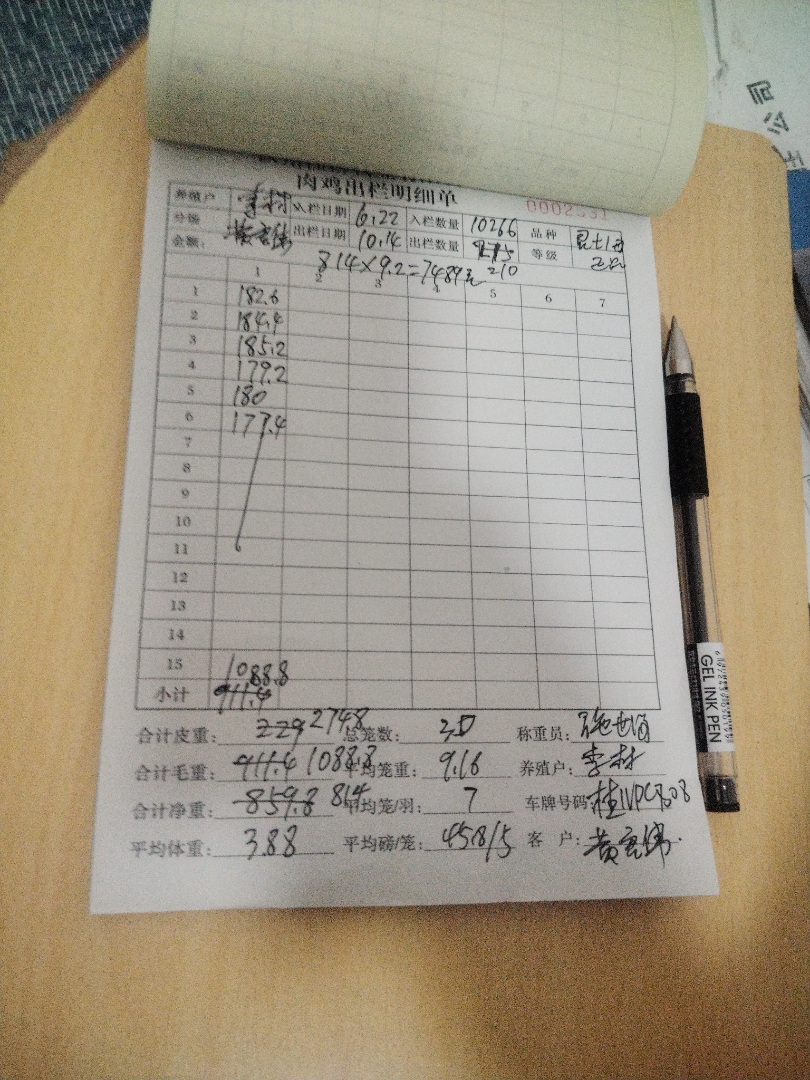 肉鸡出栏明细单
养殖户 李材 入栏日期 6.22 入栏数量 10266 品种
出栏日期 10.14 出栏数量 210 等级
金额: 814×9.2=7489元
1 2 3 4 5 6 7
1 182.6
2 184.4
3 185.2
4 179.2
5 180
6 177.4
7
8
9
10
11
12
13
14
15 1088.8
小计 911.4
合计皮重: 229 274.8 总笼数: 30 称重员:
合计毛重: 911.4 1088.8 平均笼重: 9.16 养殖户: 李材
合计净重: 859.8 814 平均笼/羽: 7 车牌号码:
平均体重: 3.88 平均磅/笼: 45.8/5 客 户: 黄宏伟
GEL INK PEN
公司